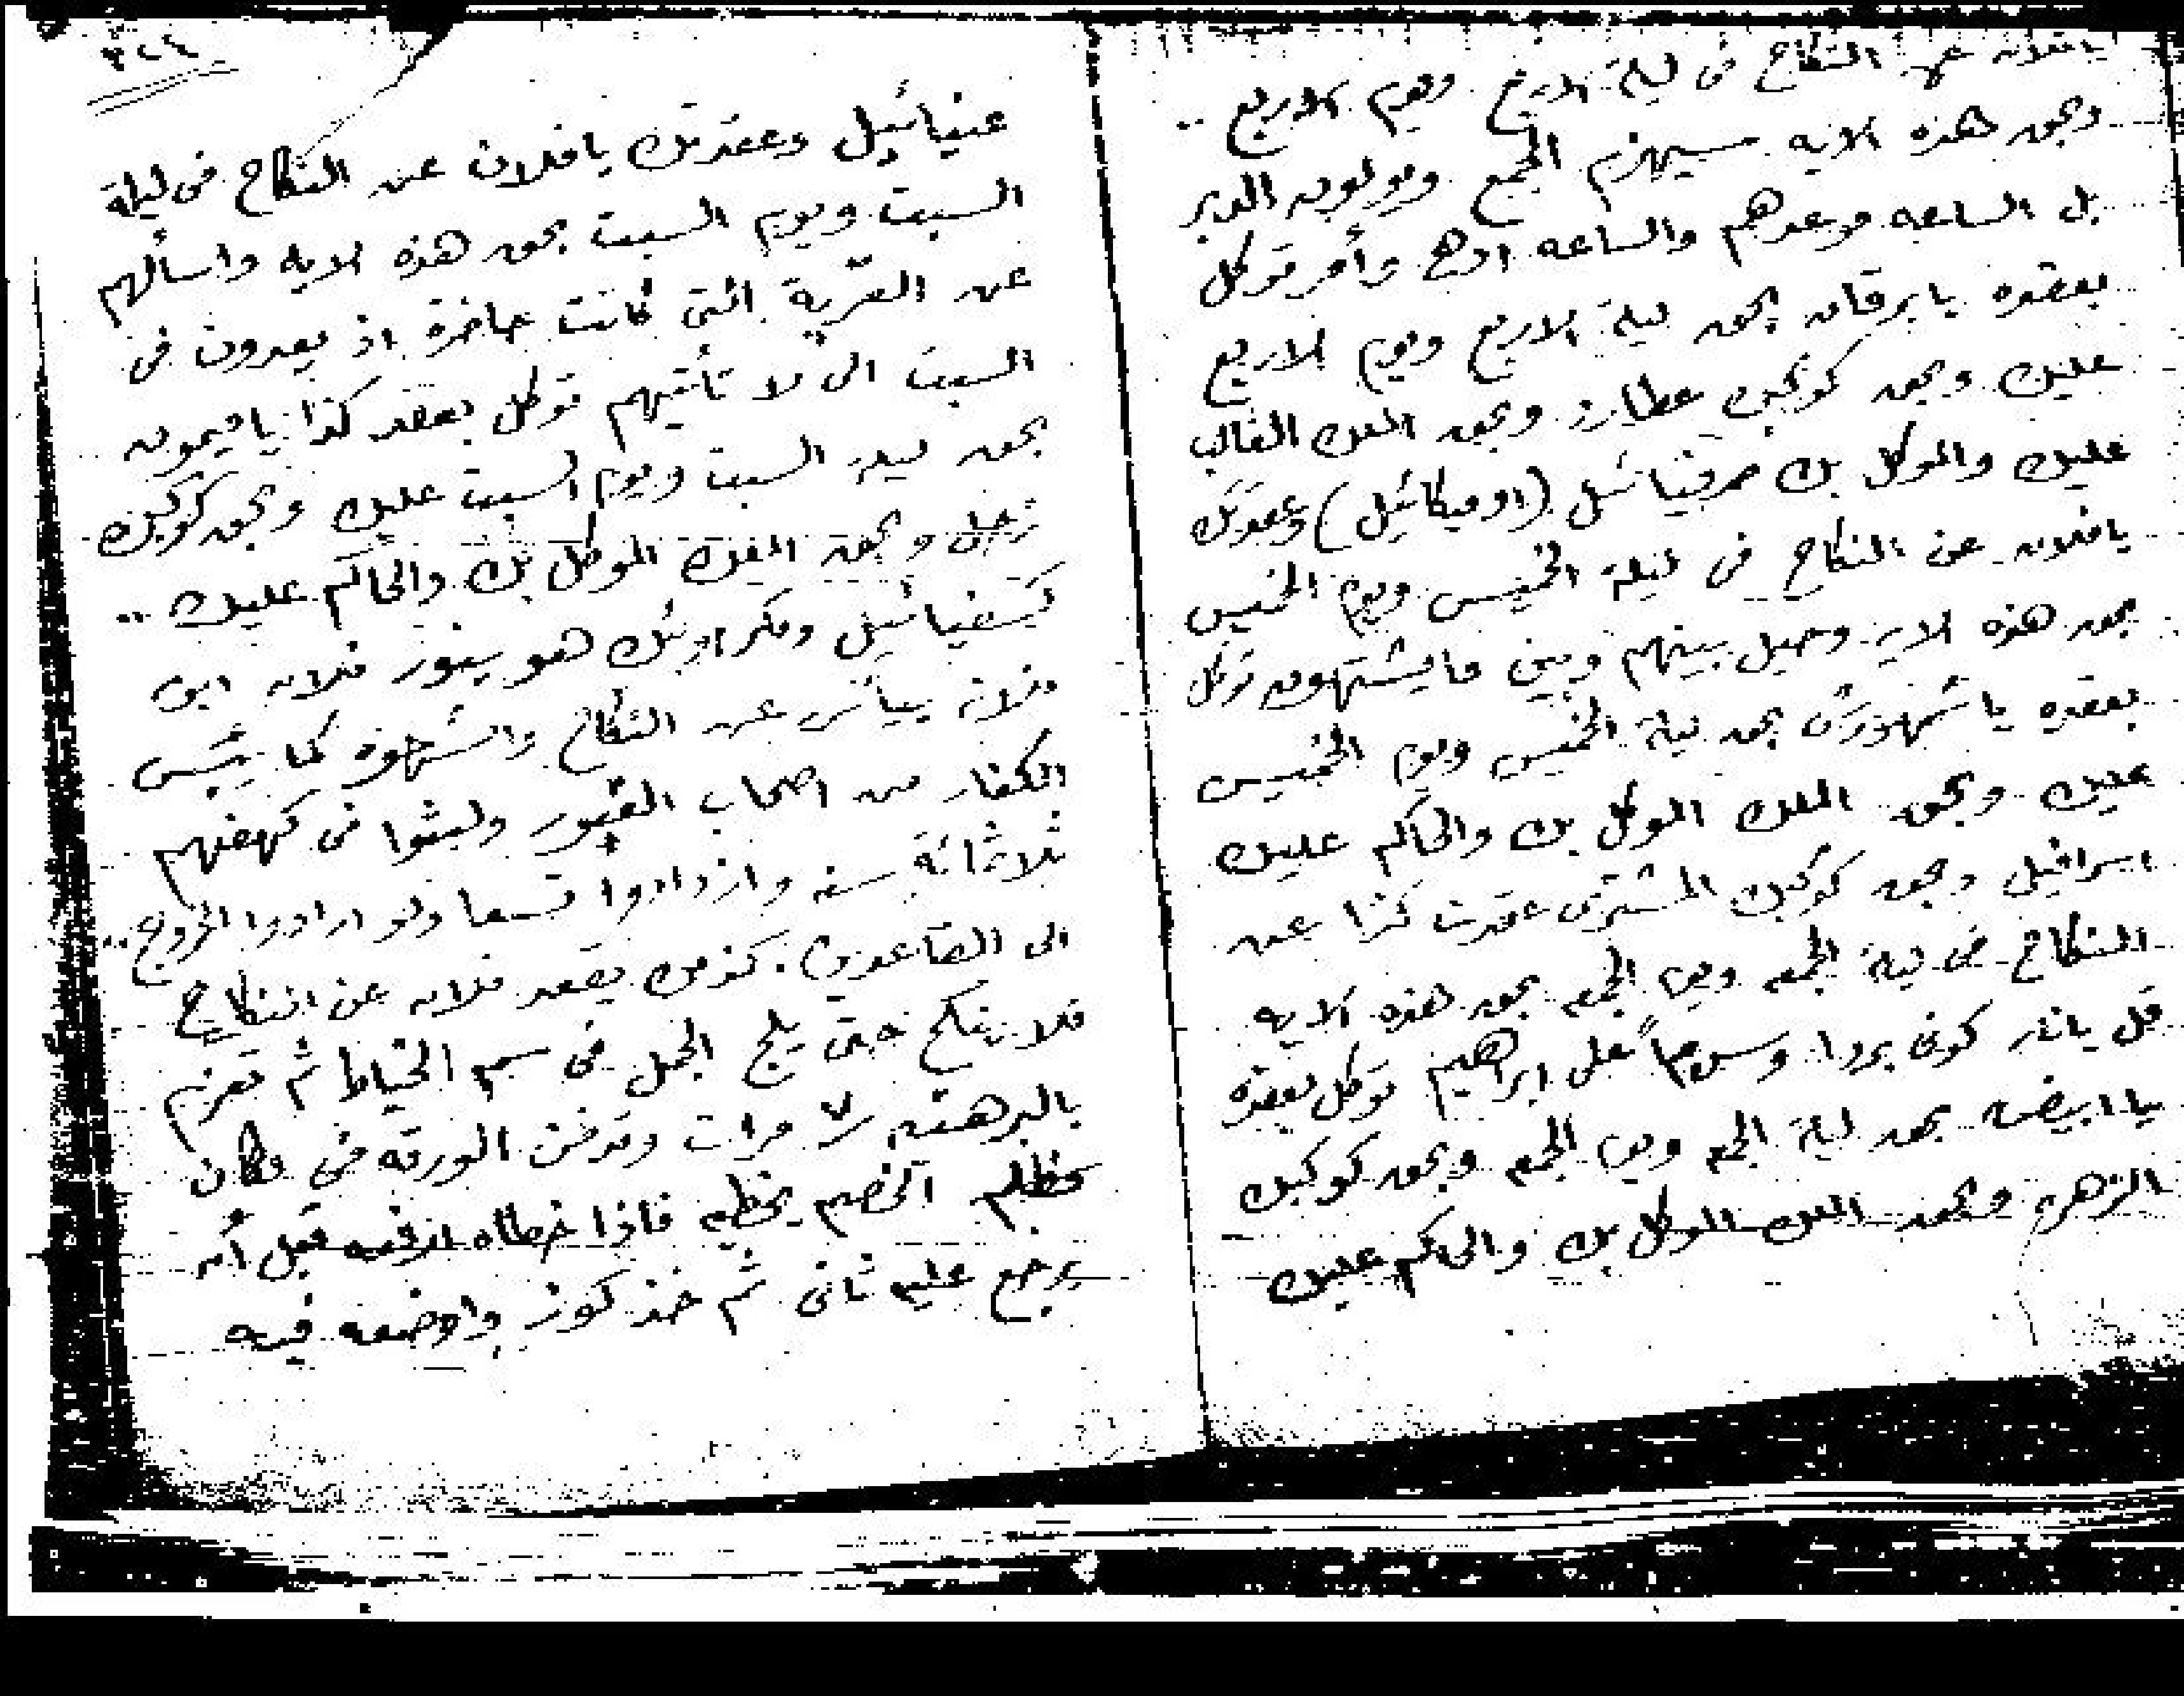 يافلان عن النكاح فى ليلة الاربع ويوم الاربع ..
وبحق هذه الايه سيهزم الجمع ويولون الدبر
بل الساعه موعدهم والساعه ادهى وأمر توكل
بعقده يابرقان بحق ليلة الاربع ويوم الاربع
عليك وبحق كوكبك عطارد وبحق الملك الغالب
عليك والموكل بك صرفيائيل (او ميكائيل) وعقدتك
يافلان عن النكاح فى ليلة الخميس ويوم الخميس
بحق هذه الايه وحيل بينهم وبين مايشتهون توكل
بعقده ياشمهورش بحق ليلة الخميس ويوم الخميس
عليك وبحق الملك الموكل بك والحاكم عليك
اسرافيل وبحق كوكبك المشترى عقدت كذا عن
النكاح فى ليلة الجمعه ويوم الجمعه بحق هذه الايه
قل يانار كونى بردا وسلاماً على ابراهيم توكل بعقده
يا ابيض بحق ليلة الجمعه ويوم الجمعه وبحق كوكبك
الزهره وبحق الملك الموكل بك والحاكم عليك
٣٢٦
عنيائيل وعقدتك يافلان عن النكاح فى ليلة
السبت ويوم السبت بحق هذه الايه واسألهم
عن القرية التى كانت حاضرة اذ يعدون فى
السبت الى لا تأتيهم توكل بعقد كذا ياميمون
بحق ليلة السبت ويوم السبت عليك وبحق كوكبك
زحل وبحق الملك الموكل بك والحاكم عليك ..
كسفيائيل هو ينوز فلان ابن
فلانه ييأس عن النكاح والشهوه كما يئس
الكفار من اصحاب القبور ولبثوا فى كهفهم
ثلاثمائة سنه وازدادوا تسعا ولو ارادوا الخروج ..
الى القاعدين . كذلك يقعد فلان عن النكاح
فلا ينكح حتى يلج الجمل فى سم الخياط ثم تعزم
بالبرهتيه ٧ مرات وتدفن الورقه فى مكان
مظلم الخصم يخطيه فاذا خطاه ارفعه قبل أن
يرجع عليه ثانى ثم خذ كوز واوضعه فيه